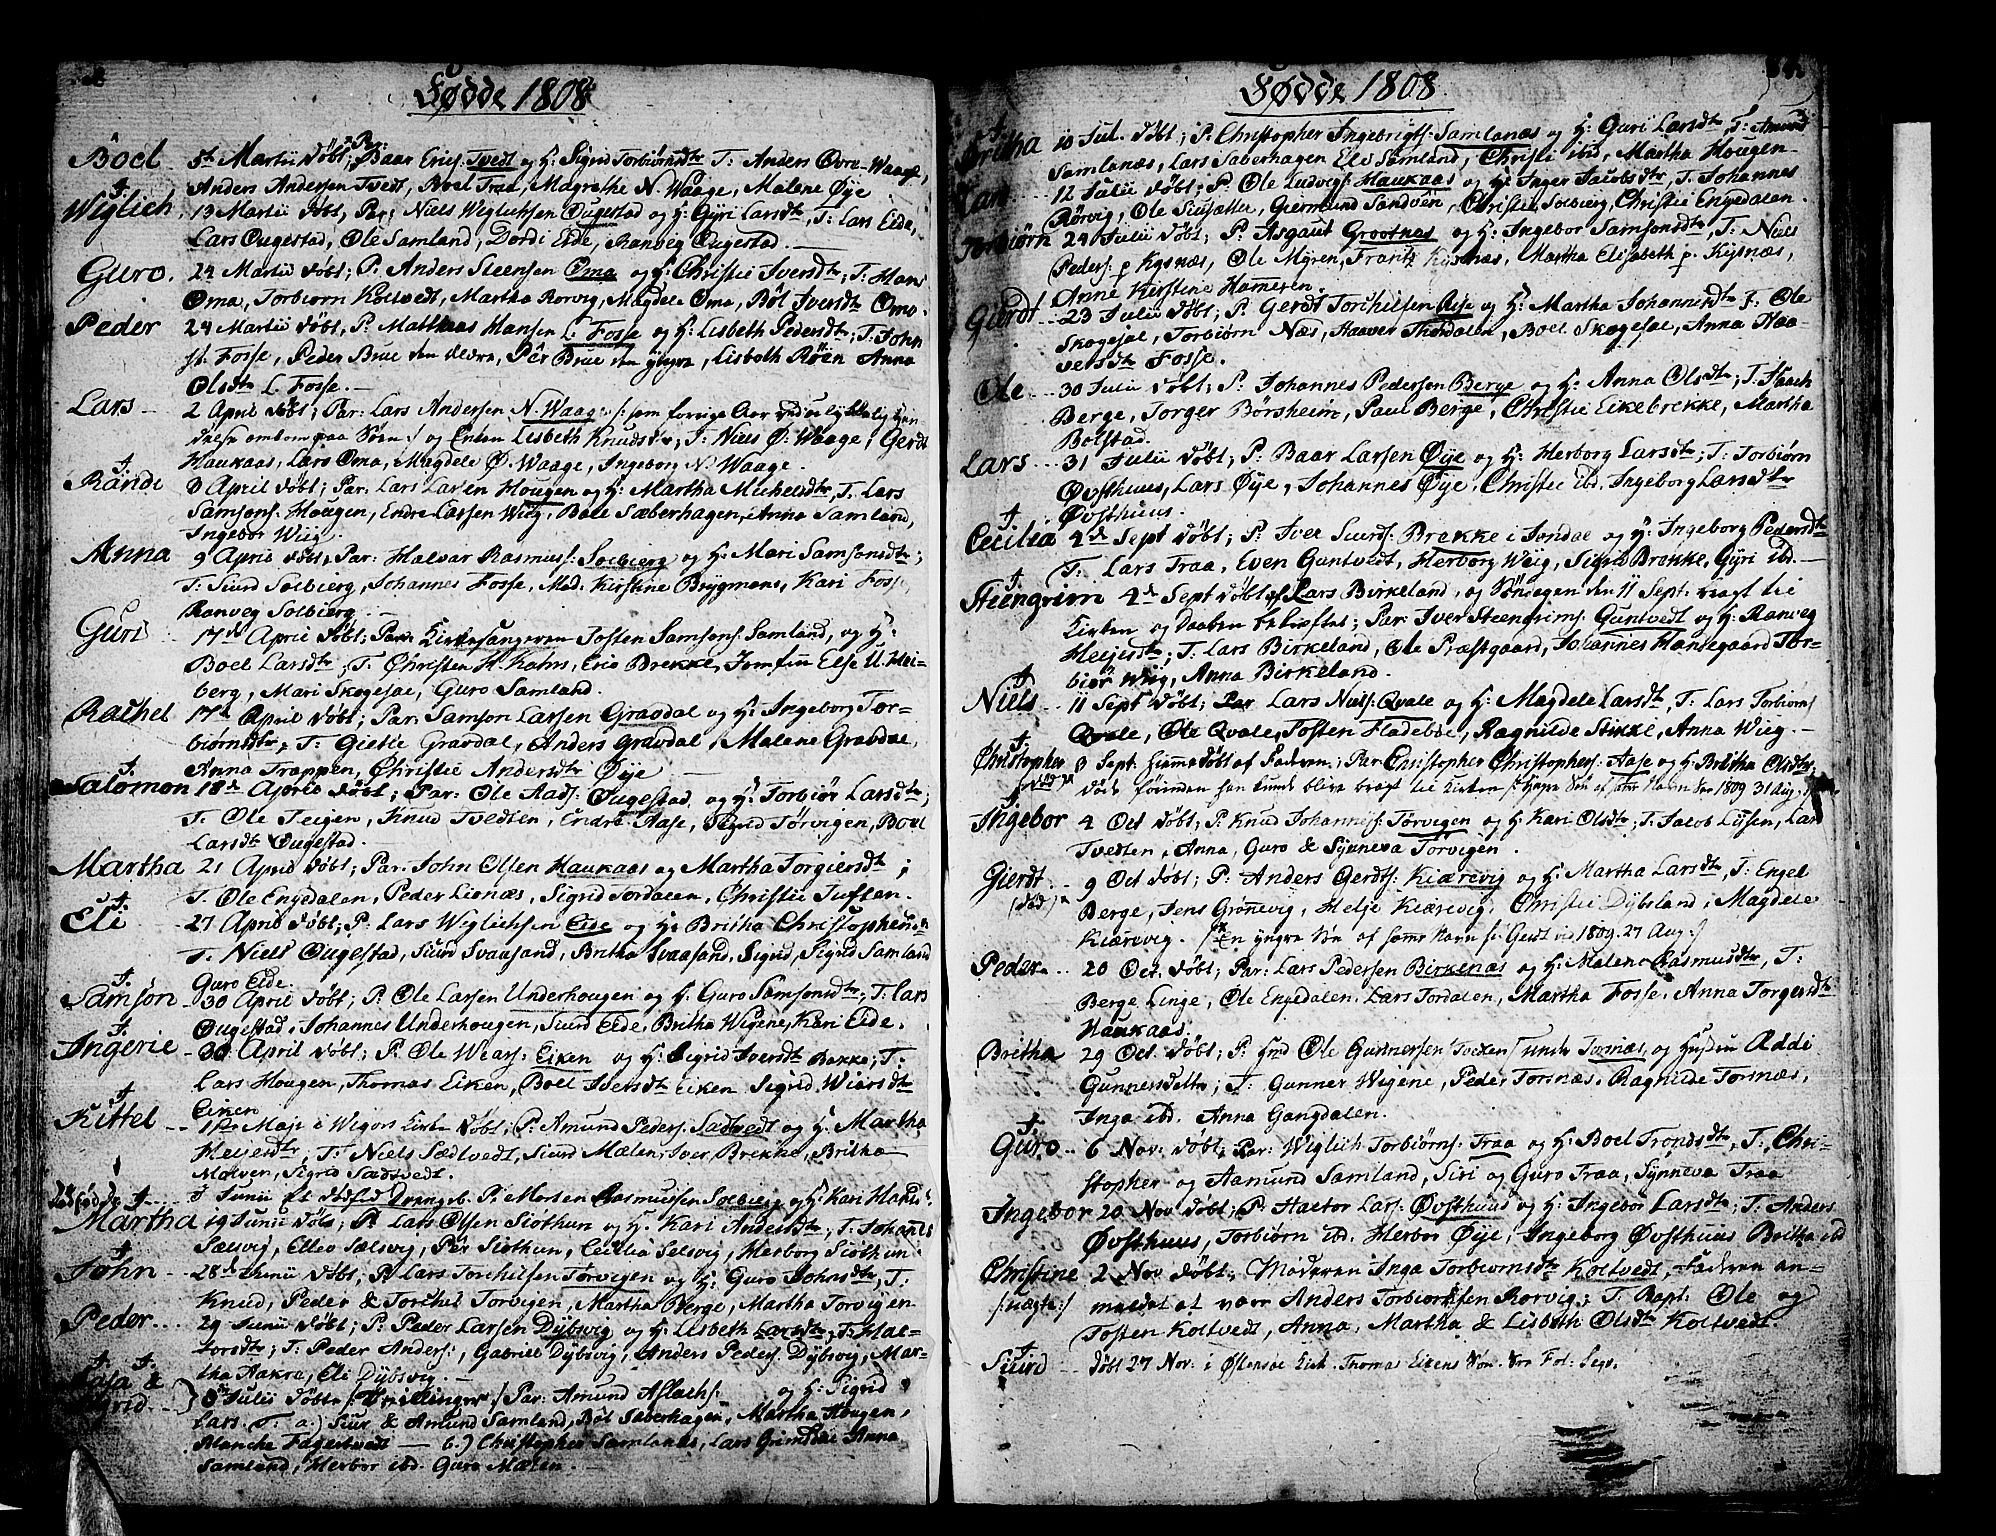 Fødde 1808
Boel 5te Martii døbt; Par: Baar Erics: Tvedt og H: Sigrid Torbiørnsdtr T: Anders Øvre-Waage,
Anders Andersen Tvedt, Boel Traa, Magrethe N. Waage, Malene Øye
Wiglich 13 Martii døbt, Par: Niels Wiglichsen Ougestad og H: Gyri Larsdtr, T: Lars Eide,
Lars Ougestad, Ole Samland, Dordi Eide, Ranveg Ougestad.
Guro. 24 Martii døbt; P: Anders Steensen Oma og H: Christie Iversdtr; T: Hans
Oma, Torbiørn Koltvedt, Martha Rorvig, Magdele Oma, Bøl Iversdtr Omo.
Peder 24 Martii døbt; P: Matthias Hansen L. Fosse og H: Lisbeth Pedersdtr; T: John
st. Fosse, Peder Brue den ældre, Pêr Brue den yngre, Lisbeth Røen Anna
Olsdtr L. Fosse.
Lars 2 April døbt; Par: Lars Andersen N. Waage /: som forrige Aar ved ulykkelig hæn
delse ombom paa Søen :/ og Enken Lisbeth Knudsdtr; T: Niels Ø: Waage, Gerdt
Haukaas, Lars Oma, Magdele Ø. Waage, Ingeborg N. Waage.
Randi 3 April døbt; Par: Lars Larsen Hougen og H: Martha Michelsdtr, T: Lars
Samsons: Hougen, Endre Larsen Wiig, Bole Sæberhagen, Anna Samland,
Ingebor Wiig.
Anna 9 April døbt, Par: Halvar Rasmus: Solbierg og H: Mari Samsonsdtr;
T: Siurd Solbierg, Johannes Fosse, Mad. Kirstine Brygmans, Kari Fosse
Ranveg Solbierg
Guri 17de April døbt; Par: Kirkesangeren Tosten Samsons: Samland, og H:
Boel Larsdtr; T: Christen H. Kahrs, Eric Brekke, Jomfru Else U. Hei-
berg, Mari Skogesal, Guro Samland.
Rachel 17de April døbt; Par: Samson Larsen Gravdal og H: Ingeborg Tor-
biørnsdtr, T: Gietle Gravdal, Anders Gravdal, Malene Gravdal,
Anna Trappen, Christie Andersdtr Øye
Salomon 18de April døbt; Par: Ole Aads: Ougestad og H: Torbiør Larsdtr;
T: Ole Teigen, Knud Tvedten, Endre Aase, Sigrid Torvigen, Boel
Larsdtr Ougestad.
Martha 21 April døbt; Par: John Olsen Haukaas og Martha Torgiersdtr;
T: Ole Engdalen, Peder Lionæs, Sigrid Tordalen, Christie Tuften.
Eli 27 April døbt; P: Lars Wiglichsen Eide og H: Britha Christophersdtr
T: Niels Ougestad, Siurd Svaasand, Britha Svaasand, Sigrid, Sigrid Samland
Guro Eide.
Samson 30 April døbt; P: Ole Larsen Underhougen og H: Guro Samsonsdtr; T: Lars
Ougestad, Johannes Underhougen, Siurd Eide, Britha Wigene, Kari Eide.
Ingerie 30 April døbt; P: Ole Wears: Eiken og H: Sigrid Iversdtr Bakke; T:
Lars Hougen, Thomas Eiken, Boel Iversdtr Eiken Sigrid Wiersdtr
Eiken
Kittel 1ste Maji i Wigørs Kirke døbt; P: Amund Peders: Sædtvedt og H: Martha
Helgesdtr, T: Niels Sædtvedt, Siurd Mælen, Iver Brekke, Britha
Mølven, Sigrid Sædtvedt.
Dødfødde Junii et dødfød Drengeb. P: Morten Rasmussen Solbierg og H: Kari
Martha 19 Junii døbt; P: Lars Olsen Siøthun og H: Kari Andersdtr; T: Johannes
Sælsvig, Ellev Sælsvig, Pêr Siøthun, Cicilia Selsvig, Herborg Siøthun
John 28de Junii døbt; P: Lars Torchilsen Torvigen og H: Guro Johnsdtr, T:
Knud, Peder & Torchel Torvigen, Martha Berge, Martha Torvigen
Peder 29 Junii døbt; P: Peder Larsen Dybsvig og H: Lisbeth Larsdtr; T: Hal-
; T: Peder Anders:, Gabriel Dybsvig, Anders Peders: Dybsvig, Mar-
tha Aakra, Eli Dybsvig.
& Sigrid 8 Julii døbte /: Tvillinger :/ Par: Amund Aslachs: og H: Sigrid
Lars. T: a.) Siur & Amund Samland, Bøl Saberhagen, Martha Hougen,
Blanche Fagertvedt — b.) Christopher Samlanæs, Lars Grimdal Anna
Samland, Herbor ibd. Guro Mælen.
Fødde 1808
Britha 10 Jul. døbt; P: Christopher Ingebrigts: Samlanæs og H: Guri Larsdtr T: Amund
Samlanæs, Lars Saberhagen Elv Samland, Christi ibd, Martha Hougen
Kari 12 Julii døbt; P: Ole Ludvigs: Haukaas og H: Inger Jacobsdtr, T: Johannes
Rørvig, Ole Siusætter, Giermund Sandven, Christie Solbierg, Christie Engedalen.
Torbiørn 24 Julii døbt; P: Asgaut Grootnæs og H: Ingebor Samsonsdtr, T: Niels
Peders: p Kysnæs, Ole Myren, Frantz Kysnæs, Martha Elisabeth p. Kysnæs,
Anne Kierstine Hameren.
Gierdt 23 Julii døbt; P: Gerdt Torchilsen Øye og H: Martha Johannesdtr T: Ole
Skogesal, Torbiørn Næs, Haaver Thordalen, Boel Skogesal, Anna Haa-
versdtr Fosse.
Ole 30 Julii døbt; P: Johannes Pedersen Berge og H: Anna Olsdtr; T: Isach
Berge, Torger Børsheim, Paul Berge, Christie Eikebrekke, Martha
Bolstad.
Lars 31 Julii døbt; P: Baar Larsen Øye og H: Herborg Larsdtr; T: Torbiørn
Øvsthuus, Lars Øye, Johannes Øye, Christie ibd. Ingeborg Larsdtr
Øvsthuus.
Cecilia 4de Sept døbt; P: Iver Siurds: Brekke i Jondal og H: Ingeborg Pedersdtr
T: Lars Traa, Even Guntvedt, Herborg Wiig, Sigrid Brekke, Gyri ibd.
Steengrim 4de Sept døbt af Lars Birkeland, og Søndagen den 11 Sept: bragt til
Kirken og Daaben bekræftet; Par: Iver Steengrims: Guntvedt og H: Ranveg
Helgesdtr; T: Lars Birkeland, Ole Præstgaard, Johannes Hansegaard Tor-
biør Wiig, Anna Birkeland.
Niels 11 Sept døbt; Par Lars Niels: Qvale og H: Magdele Larsdtr, T: Lars Torbiørns
Qvale, Ole Qvale, Tosten Fladebøe, Ragnilde Stikke, Anna Wiig.
Christopher /død/ 8 Sept. hiemmedøbt af Faderen; Par Christopher Christophers: Aase og H: Britha Olsdtr;
døde førinden han kunde blive bragt til Kirken /: yngre Søn af samme Navn See 1809 31 Aug:
Ingebor 4 Oct døbt; P: Knud Johannes: Torvigen og H: Kari Olsdtr; T: Jacob Lussen, Lars
Tvedten, Anna, Guro & Synneva Torvigen.
Gierdt /død/ 9 Oct døbt; P: Anders Gerdts: Kiærevig og H: Martha Larsdtr, T: Engel
Berge, Jens Grønevig, Helje Kiærevig, Christie Dybsland, Magdele
Kiærevig. /: En yngre Søn af samme Navn s: Gerdt ved 1809. 27 Aug :/
Peder 20 Oct. døbt; Par: Lars Pedersen Birkenæs og H: Malene Rasmusdtr, T:
Berge Linge, Ole Engedalen, Lars Tordalen, Martha Fosse, Anna Torgersdtr
Haukaas.
Britha 29 Oct. døbt; P: Hnd Ole Gunnersen Tveden / under Torsnæs, og Hustru Addi
Gunnersdatter; T: Gunner Wigene, Peder Torsnæs, Ragnilde Torsnæs,
Inga ibd. Anna Gangdalen.
Guro 6 Nov: døbt; Par: Wiglich Torbiørns: Traa og H: Boel Trondsdtr, T: Chri-
stopher og Aamund Samland, Siri og Guro Traa, Synneva Traa
Ingebor 20 Nov døbt; P: Hactor Lars: Øvsthuus og H: Ingebor Larsdtr; T: Anders
Øvsthuus, Torbiørn ibd. Herbor Øye, Ingeborg Øvsthuus Britha ibd
Christine /:uægte:/ 2 Nov døbt, Moderen Inga Torbiørnsdtr Koltvedt, Faderen an-
meldet at være Anders Torbiørnsen Rorvig; T: Rapt: Ole og
Tosten Koltvedt, Anna, Martha & Lisbeth Olsdtr Koltvedt
Siurd døbt 27 Nov: i Østensøe Kirk. Thomas Eikens Søn.